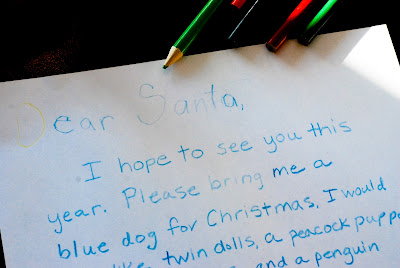 Dear Santa,
I hope to see you this
year. Please bring me a
blue dog for Christmas. I would
like twin dolls, a peacock puppe
and a penguin